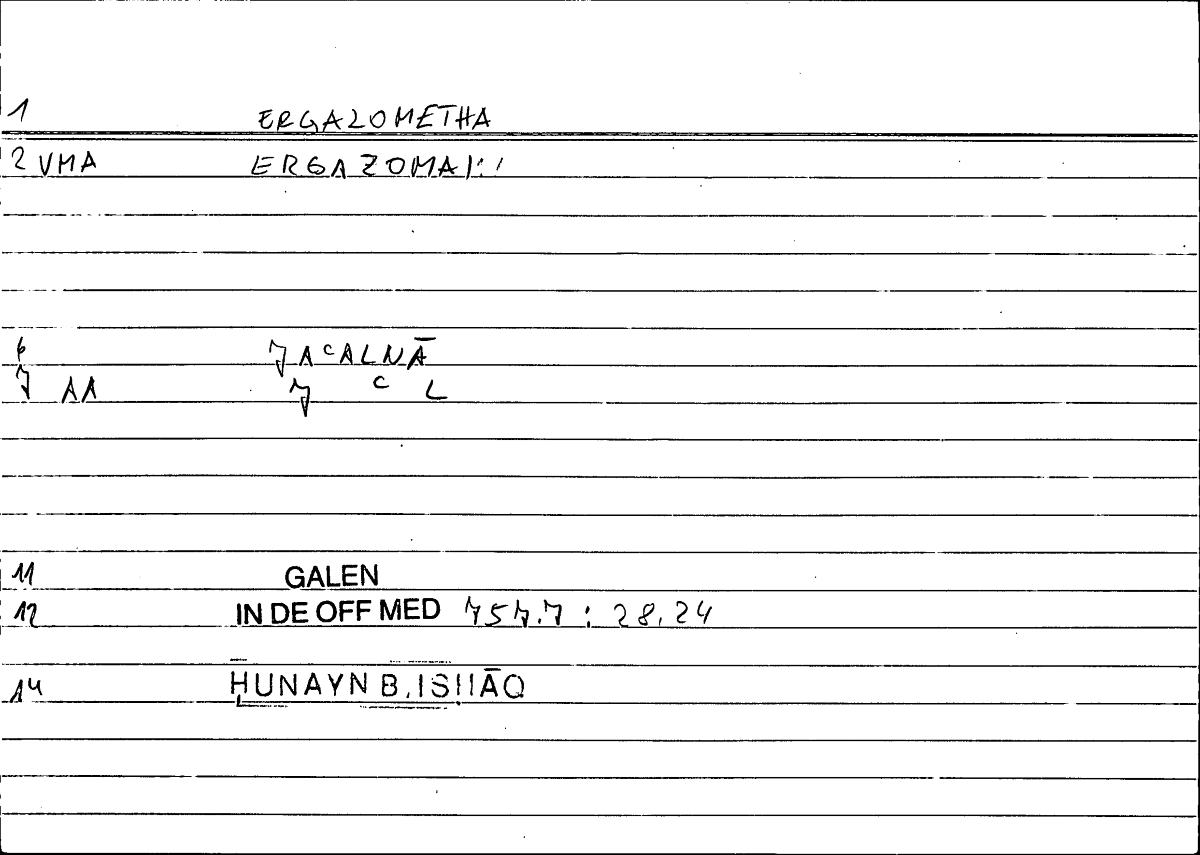 1 ERGAZOMETHA
2 VMA ERGAZOMAI:'
6 ǦAᶜALNĀ
7 AA Ǧ ᶜ L
11 GALEN
12 IN DE OFF MED 757.7 : 28,24
14 ḤUNAYN B. ISḤĀQ